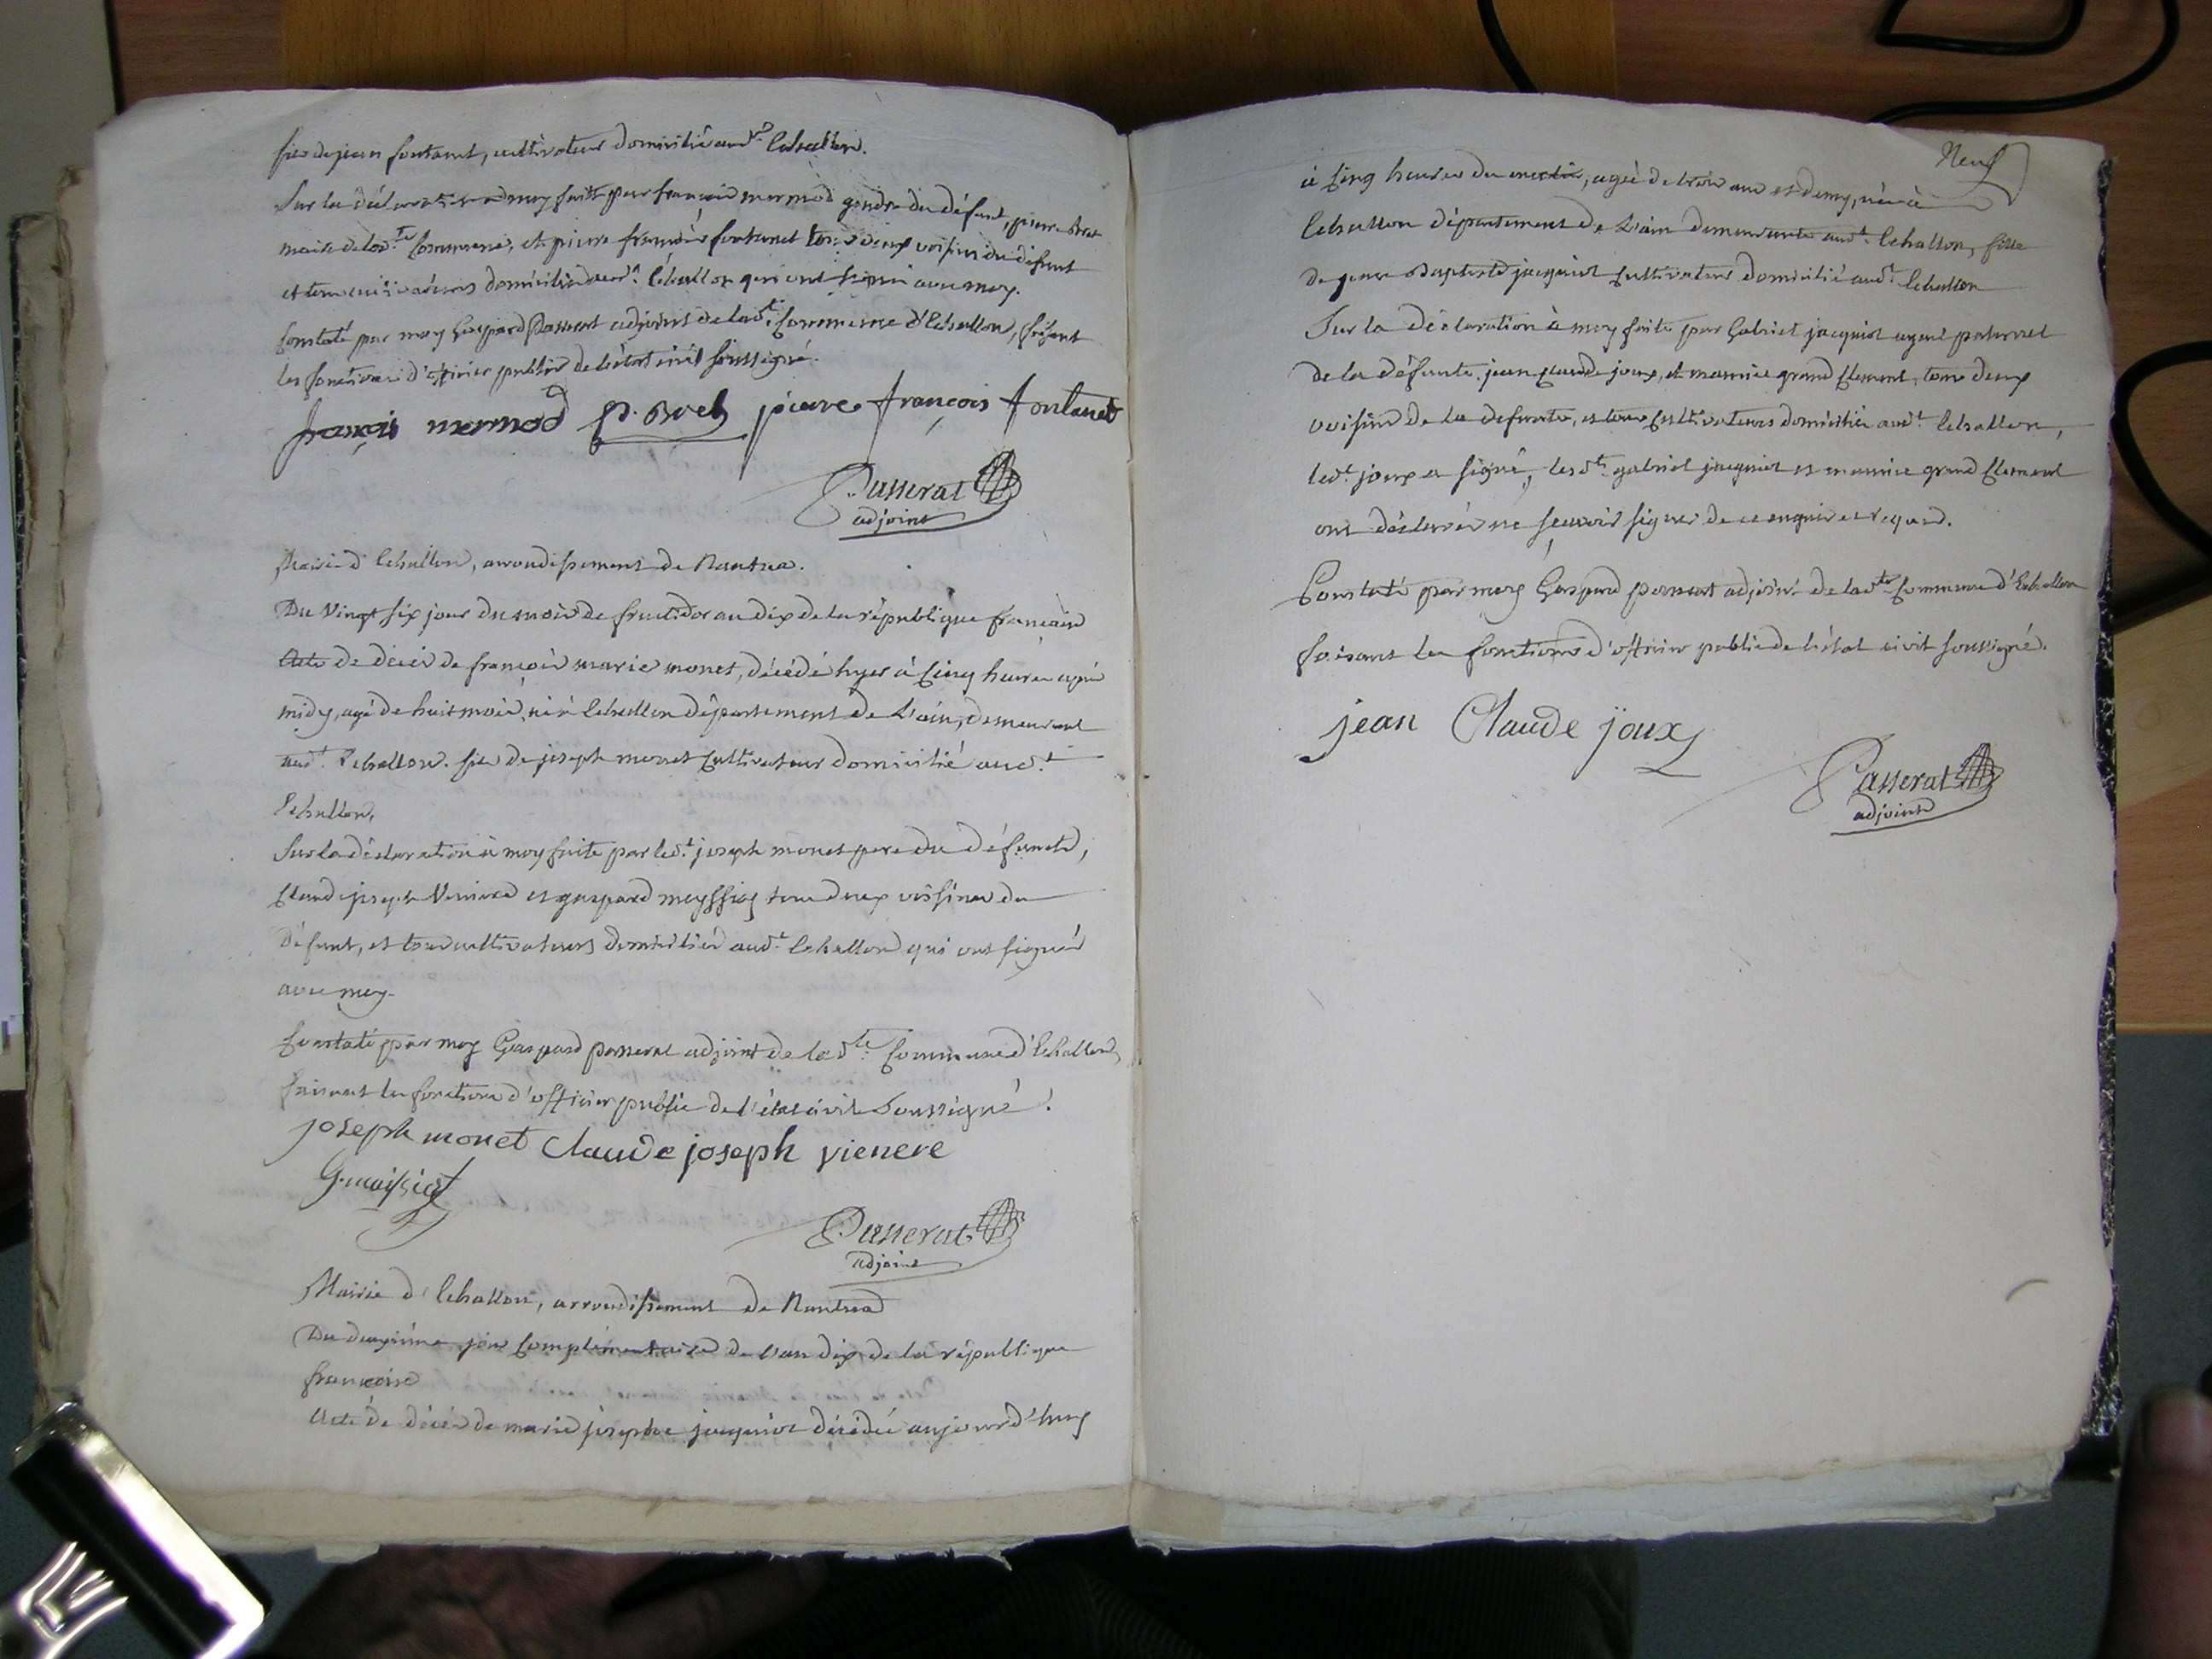 fils de jean fontanet, cultivateur domicilié aud.t Echallon.
Sur la déclaration a moy faitte par françois mermod gendre du défunt, pierre Bret
maire de lad.te Commune, et pierre françois fontanet tous deux voisins du défunt
et tous cultivateurs domiciliés aud.t Echallon qui ont signés avec moy.
Constaté par moy Gaspard Passerat adjoint de lad.te Commune d'Echallon, faisant
les fonctions d'officier public de l'état civil soussigné.
françois mermod P. Bret pierre françois fontanet
Passerat
adjoint
Mairie d'Echallon, arrondissement de Nantua.
Du Vingt six jour du mois de fructidor an dix de la république francaise
Acte de décès de françois marie monet, décédé hyer à Cinq heures après
midy, agé de huit mois, né à Echallon département de L'ain, demeurant
aud.t Echallon. fils de joseph monet Cultivateur domicilié aud.t
Echallon,
Sur la déclaration à moy faite par led.t joseph monet pere du défunct,
Claude joseph et gaspard meyssiat tous deux voisins du
Défunt, et tous cultivateurs domiciliés aud.t Echallon qui ont signés
avec moy.
Constaté par moy Gaspard passerat adjoint de lad.te Commune d'Echallon,
faisant les fonctions d'officier public de l'état civil Soussigné.
joseph monet Claude joseph vienere
G. maissiat
Passerat
adjoint
Mairie d'Echallon, arrondissement de Nantua
Du deuxième jour Complémentaire de l'an dix de la république
francaise
Acte de décès de marie josephe jacquiot décédée aujourd'huy
Neuf
à Cinq heures du matin, agée de trois ans et demy, née à
Echallon département de L'ain demeurante aud.t Echallon, fille
de jean Baptiste jacquiot Cultivateur domicilié aud.t Echallon
Sur la déclaration à moy faite par Gabriel jacquiot ayeul paternel
de la défunte, jean Claude joux, et maurice grand Clement, tous deux
voisins de la defunte, et tous Cultivateurs domiciliés aud.t Echallon,
led.t joux a signé, lesd.ts gabriel jacquiot et maurice grand Clement
ont déclarés ne scavoir signer de ce enquis et requis.
Constaté par moy Gaspard passerat adjoint de lad.te Commune d'Echallon
faisant les fonctions d'officier public de l'état civil soussigné.
jean Claude joux
Passerat
adjoint